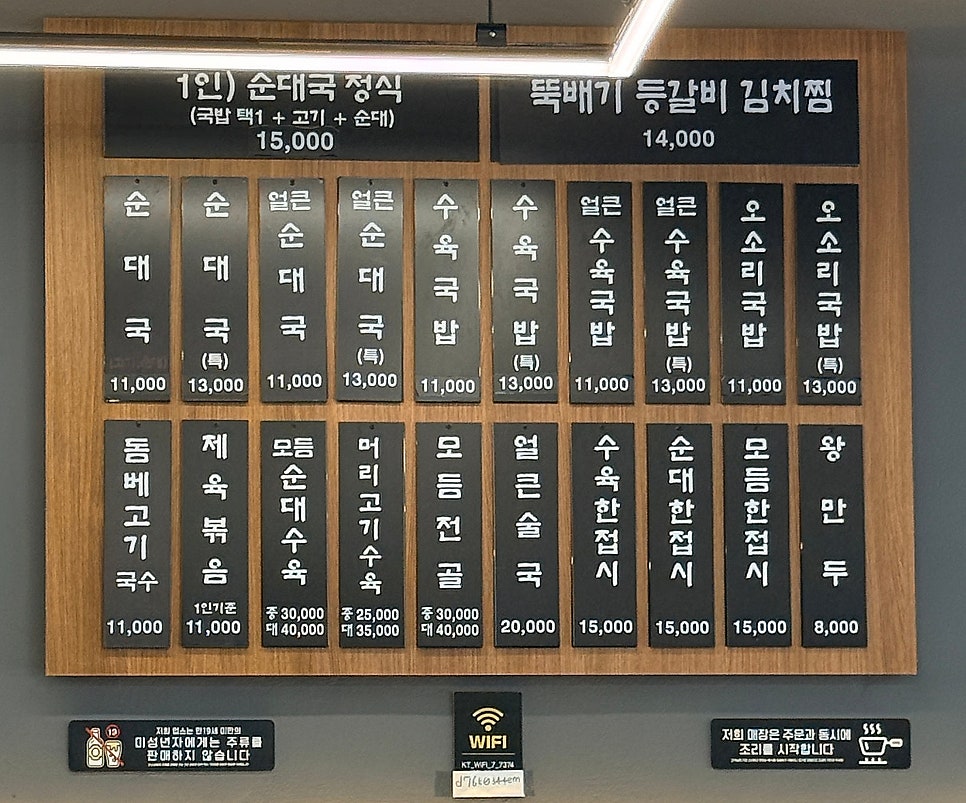 1인) 순대국 정식
(국밥 택1 + 고기 + 순대)
15,000
뚝배기 등갈비 김치찜
14,000
순대국
11,000
순대국
(특)
13,000
얼큰
순대국
11,000
얼큰
순대국
(특)
13,000
수육국밥
11,000
수육국밥
(특)
13,000
얼큰
수육국밥
11,000
얼큰
수육국밥
(특)
13,000
오소리국밥
11,000
오소리국밥
(특)
13,000
돔베고기
국수
11,000
제육볶음
1인기준
11,000
모듬
순대수육
중 30,000
대 40,000
머리고기수육
중 25,000
대 35,000
모듬전골
중 30,000
대 40,000
얼큰술국
20,000
수육한접시
15,000
순대한접시
15,000
모듬한접시
15,000
왕만두
8,000
19
저희 업소는 만19세 미만의
미성년자에게는 주류를
판매하지 않습니다
WIFI
KT_WiFi_7_7374
저희 매장은 주문과 동시에
조리를 시작합니다